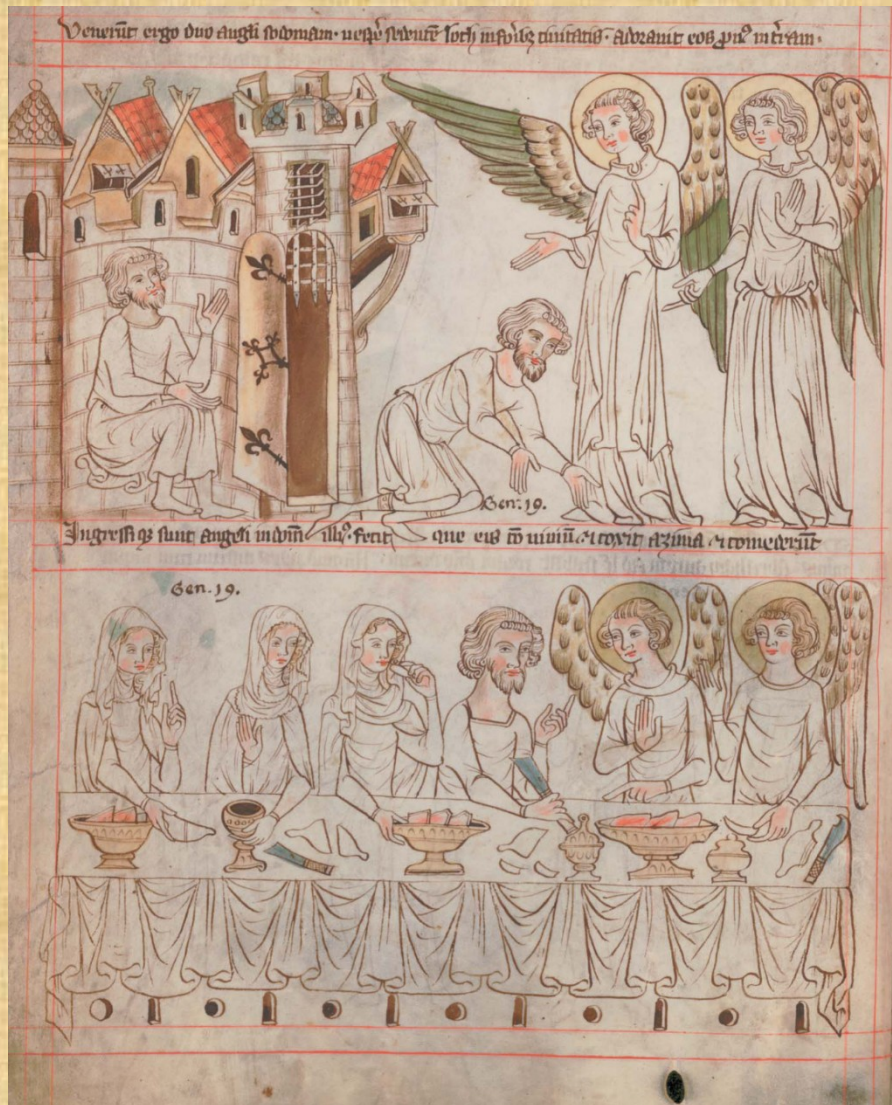 Venerūt ergo duo angłi sodomam· uesꝑe sedente loth in forib; ciuitatis· adorauit eos ꝓnꝰ in t̄ram·
Gen. 19.
Ingressi qꝫ sunt angeli in domū illiꝰ· fecit que eis cō uiuiū ⁊ coxit azima ⁊ comederūt
Gen. 19.